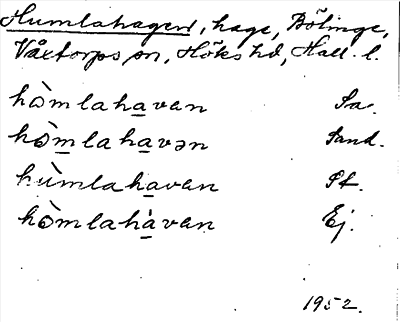 Humlahagen, hage, Bölinge,
Våxtorps sn, Höks hd, Hall. l.
hòmlahavan Sa.
hòmlahavən Sand.
hùmlahavan St.
hòmlahàvan Ej.
1952.